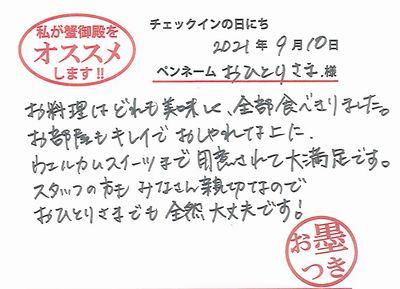 私が蟹御殿を
オススメ
します!!
チェックインの日にち
2021年9月10日
ペンネーム おひとりさま 様
お料理はどれも美味しく、全部食べきりました。
お部屋もキレイでおしゃれな上に、
ウェルカムスイーツまで用意されて大満足です。
スタッフの方も みなさん親切なので
おひとりさまでも 全然 大丈夫です!
お墨
つき